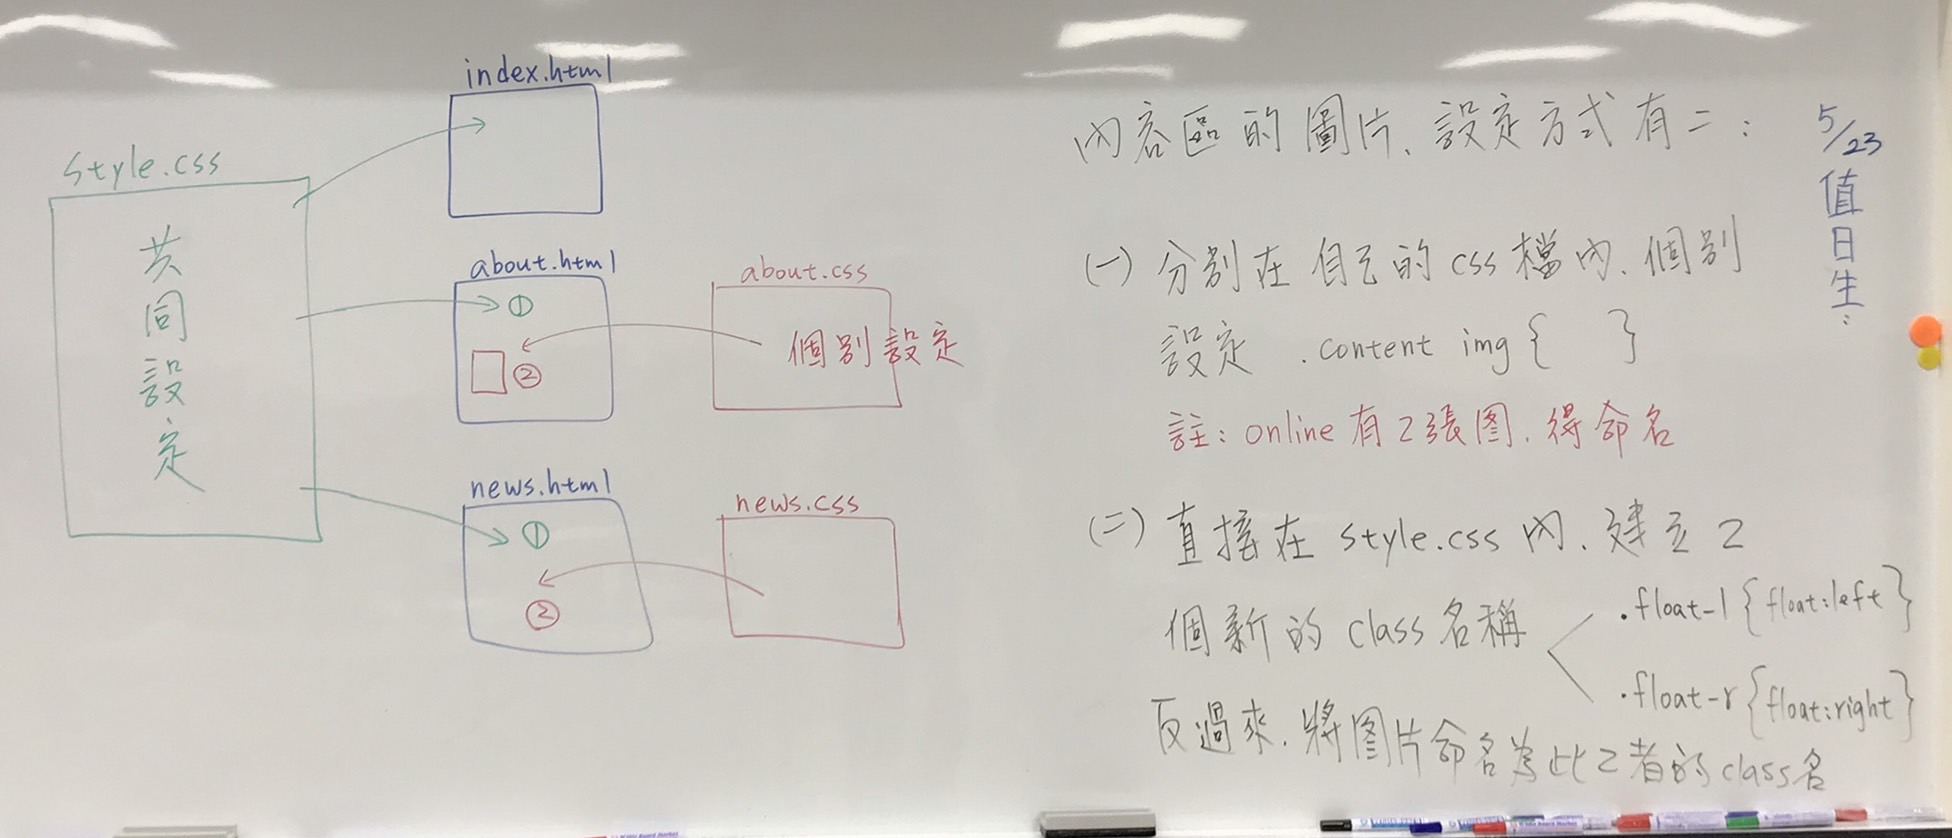 style.css
共同設定
index.html
about.html
①
②
about.css
個別設定
news.html
①
②
news.css
內容區的圖片、設定方式有二：
(一) 分別在自己的css檔內、個別
設定 .content img { }
註：online有2張图，得命名
(二) 直接在 style.css 內、建立2
個新的 class 名稱
.float-l {float:left}
.float-r {float:right}
反過來，將图片命名為此2者的class名
5/23
值日生：